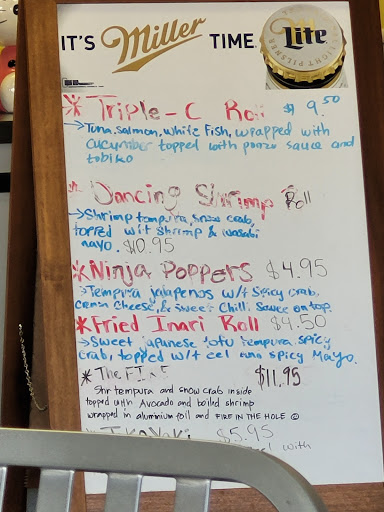 IT'S Miller TIME.
Lite
LIGHT PILSNER
* Triple-C Roll $ 9.50
→Tuna, salmon, white fish, wrapped with
cucumber topped with ponzu sauce and
tobiko
* Dancing Shrimp Roll
→Shrimp tempura, snow crab,
topped wit shrimp & wasabi
mayo. $10.95
*Ninja Poppers $4.95
→Tempura jalapenos w/t Spicy crab,
cream cheese, & sweet Chilli Sauce on top.
*Fried Inari Roll $4.50
→Sweet japanese tofu tempura, spicy
crab, topped w/t eel and spicy Mayo.
* The $11.95
Shr tempura and snow crab inside
topped with Avocado and boiled shrimp
wrapped in aluminium foil and FIRE IN THE HOLE ☺
$5.95
with